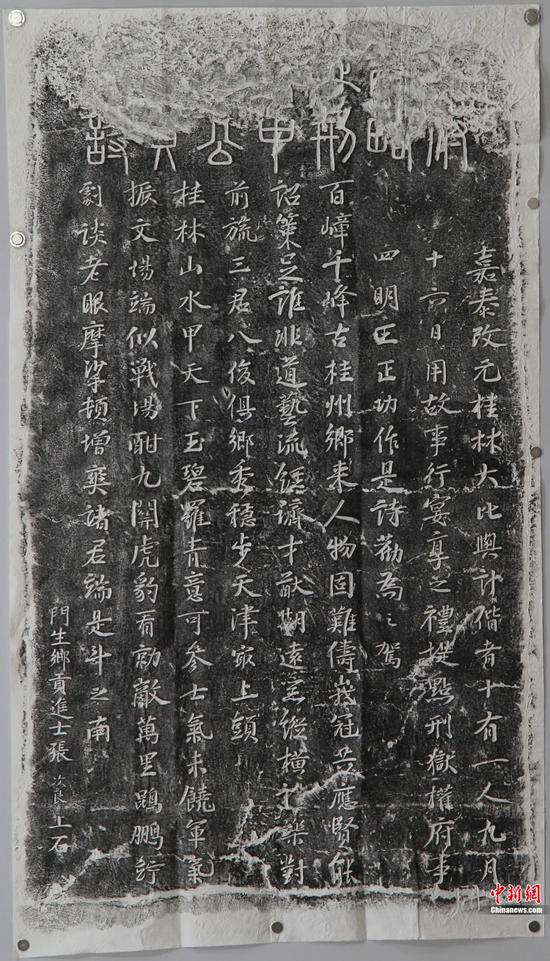 刑中公詩
嘉泰改元桂林大比與計偕者十有一人九月
十六日用故事行宴享之禮提點刑獄權府事
四明王正功作是詩勸為之駕
百嶂千峰古桂州鄉來人物固難儔峩冠共應賢能
詔策足誰非道藝流經濟才猷期遠業縱橫禮樂對
前旒三君八俊俱鄉秀穩步天津最上頭
桂林山水甲天下玉碧羅青意可參士氣未饒軍氣
振文場端似戰場酣九關虎豹看勍敵萬里鵾鵬佇
劇談老眼摩挲頓增爽諸君端是斗之南
門生鄉貢進士張次良上石
中新網
Chinanews.com